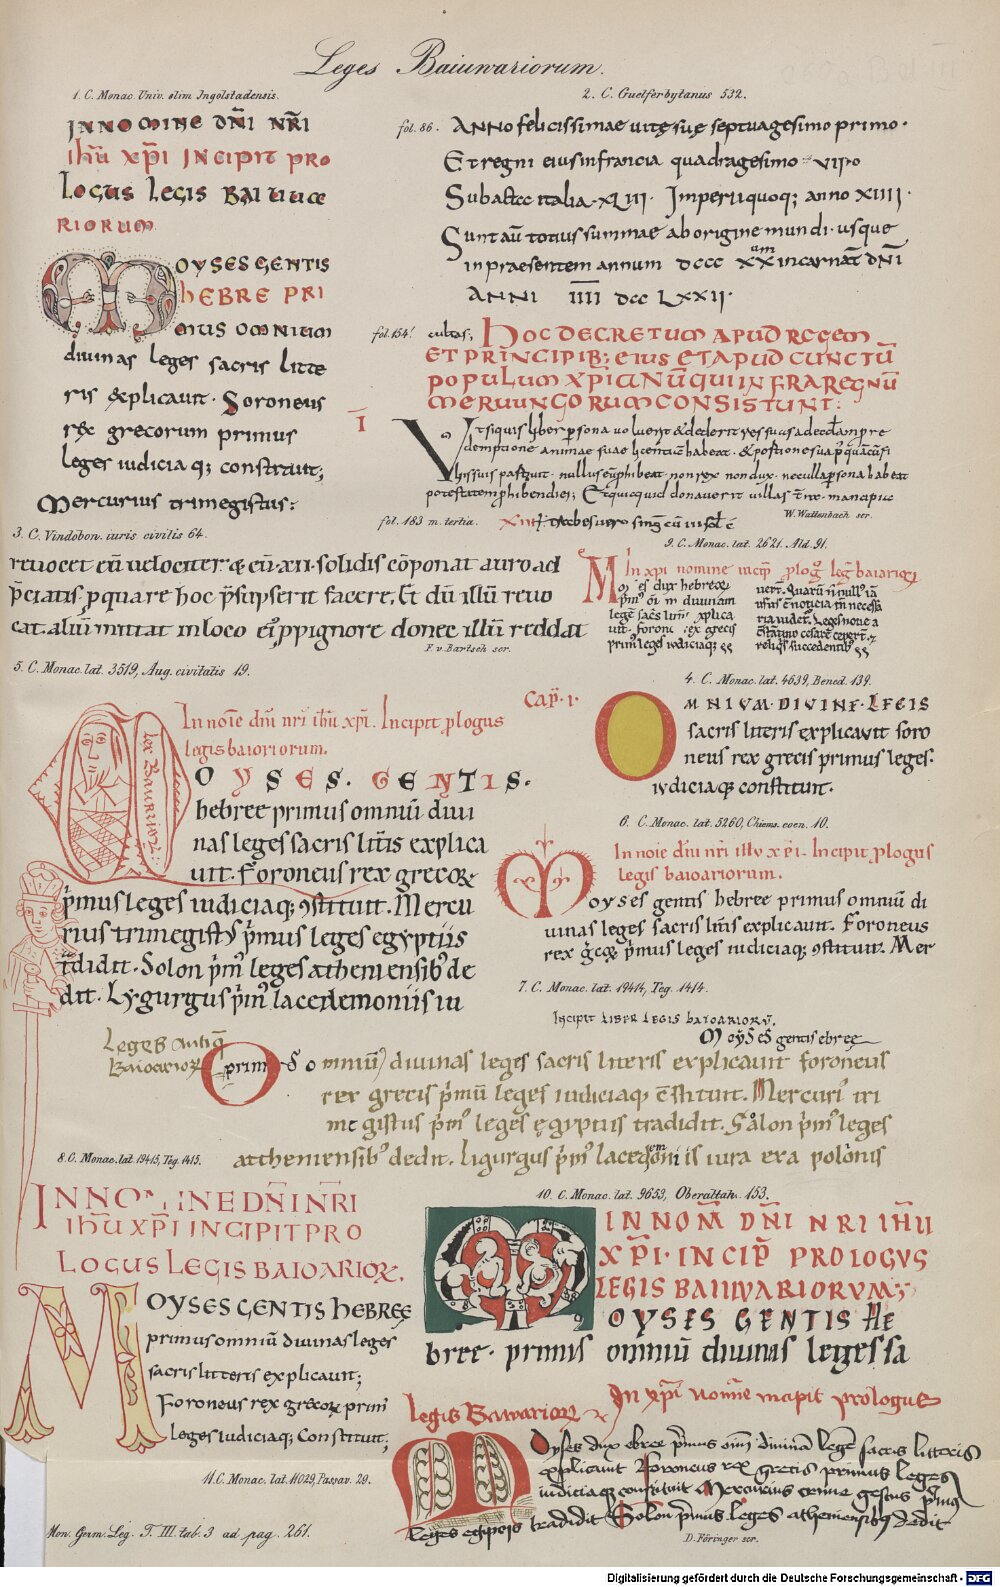 Leges Baiuwariorum.
1. C. Monac. Univ. olim Ingolstadensis.
INNOMINE DN̄I NR̄I
IHŪ XP̄I INCIPIT PRO
LOGUS LEGIS BAIUUA
RIORUM
MOYSES GENTIS
HEBRE PRI
MUS OMNIUM
diuinas leges sacris litte
ris explicauit. Soroneus
rex grecorum primus
leges iudicia q; constituit;
Mercurius trimegistus:
2. C. Guelferbytanus 532.
fol. 86. ANNO felicissimae uitę suę septuagesimo primo.
Et regni eius in francia quadragesimo
Subactae italia. XLIII. Imperii quoq; anno XIIII.
Sunt aū totius summae ab origine mundi. usque
in praesentem annum DCCC XX incarnat̄ DN̄I
ANNI IIII DCC LXXII.
fol. 154! HOC DECRETUM APUD REGEM
ET PRINCIPIB; EIUS ET APUD CUNCTŪ
POPULUM XP̄IANŪ QUI INFRA REGNŪ
MERUUNGORUM CONSISTUNT:
I
Ut si quis liber persona uoluerit & dederit res suas ad
demptione animae suae licentiā habeat
potestatem ꝓhibendi ei; Et quicquid donauerit uillas mancipiis
W. Wattenbach scr.
fol. 183 m. tertia.
3. C. Vindobon. iuris civilis 64.
reuocet eū uelociter & cū XII. solidis cōponat auro ad
p̄ciatis ꝓ quare hoc p̄supserit facere, Et dū illū reuo
cat. aliū mittat in loco ei' ꝓ pignore donec illū reddat
F. v. Bartsch scr.
9. C. Monac. lat. 2621. Ald. 91.
In xpi nomine incip̄ plog' leg̅ baiarioꝝ
4. C. Monac. lat. 4639, Bened. 139.
OMNIVM. DIVINE. LEGIS
sacris litteris explicauit foro
neus rex grecis primus leges.
iudiciaq; constituit.
5. C. Monac. lat. 3519, Aug. civitatis 19.
Cap. I.
Lex Bauuarioꝝ
In noīe dn̄i nr̄i ihū xp̄i. Incipit ꝓlogus
legis baioriorum.
OYSES. GENTIS.
hebree primus omniū diui
nas leges sacris litt̄is explica
uit. Foroneus rex grecoꝝ
p̄mus leges iudiciaq; ꝯstituit. Mercu
rius trimegist' p̄mus leges egyptiis
tdidit. Solon p̄m' leges atheniensib' de
dit. Lygurgus p̄m' lacedemoniis iu
6. C. Monac. lat. 5260, Chiems. coen. 10.
In noīe dn̄i nr̄i ihū xp̄i. Incipit ꝓlogus
legis baioariorum.
Moyses gentis hebree primus omniū di
uinas leges sacris litt̄is explicauit. Foroneus
rex g̊coꝝ p̄mus leges iudiciaq; ꝯstituit. Mer
7. C. Monac. lat. 19414, Teg. 1414.
Incipit LIBER LEGIS BAIOARIORV̄.
Moyses gentis ebree
Leges antiq̄
Baioarioꝝ
prim' omniū diuinas leges sacris litteris explicauit foroneus
rex grecis p̄mū leges iudiciaq; cstituit. Mercuri' tri
megistus p̄m' leges egyptiis tradidit. Solon p̄m' leges
atheniensib' dedit. Ligurgus p̄m' lacedemoniis iura exa polonis
8. C. Monac. lat. 19415, Teg. 1415.
INNOMINE DN̄I NR̄I
IHŪ XP̄I INCIPIT PRO
LOGUS LEGIS BAIOARIOꝜ.
MOYSES GENTIS HEBREĘ
primus omniū diuinas leges
sacris litteris explicauit;
Foroneus rex grecoꝝ prim'
leges iudiciaq; constituit;
10. C. Monac. lat. 9653, Oberaltah. 153.
IN NOM̄ DN̄I NRI IHŪ
XP̄I. INCIP̄ PROLOGVS
LEGIS BAIIVVARIORVM;
OYSES GENTIS HE
bree. primus omniū diuinas leges sa
11. C. Monac. lat. 11029, Passav. 29.
In xp̄i nomīe incipit prologus
legis Bawarioꝝ
Moyses dux ebree p̄mus oīm diuinā legē sacris litteris
explicauit Foroneus rex grecis primus leges
iudiciaq; constituit Mercurius trime gestus p̄mus
leges egipcijs tradidit Solon p̄mus leges atheniensibus dedit
D. Föringer scr.
Mon. Germ. Leg. T. III. tab. 3 ad pag. 261.
Digitalisierung gefördert durch die Deutsche Forschungsgemeinschaft - DFG